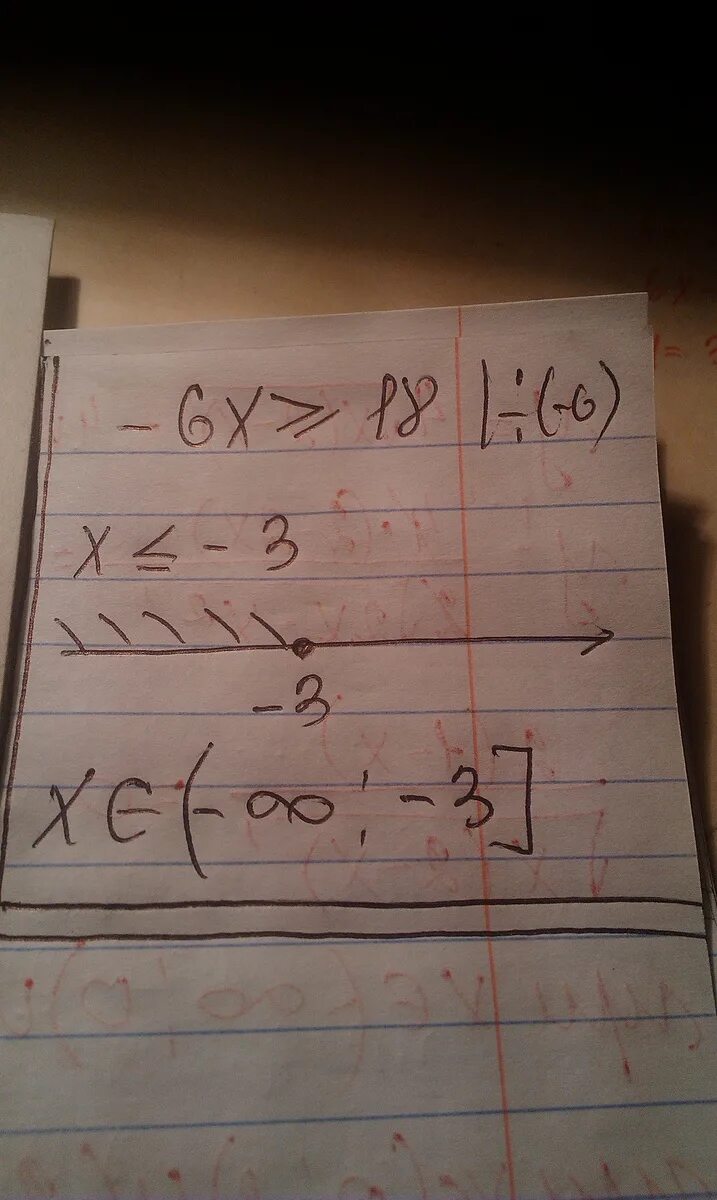 - 6x ⩾ 18 |÷(-6)
x ≤ - 3
-3
x ∈ (- ∞ ; - 3]